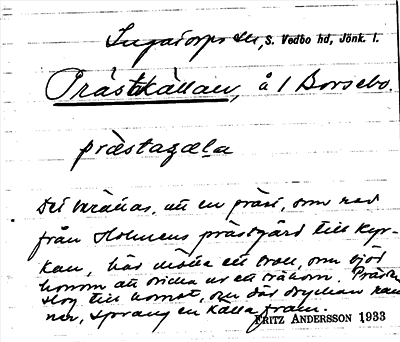 Ingatorps sn, S. Vedbo hd, Jönk. l.
Prästkällan, å 1 Borsebo.
præstaɡæla
Det berättas, att en präst, som red
från Holmens prästgård till Kyr-
kan, här mötte ett troll, som bjöd
honom att dricka ur ett trähorn. Prästen
slog till hornet, och där drycken ran
ner, sprang en källa fram.
FRITZ ANDERSSON 1933